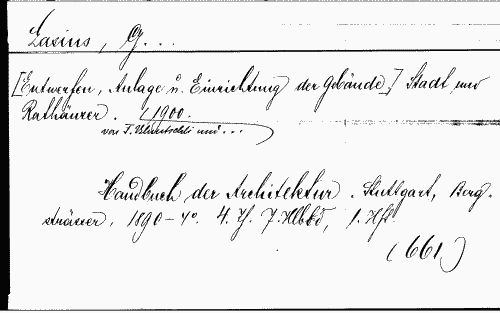 Lasius, G...
[Entwerfen, Anlage u. Einrichtung der Gebäude.] Stadt und
Rathäuser. (1900.
von F. Bluntschli und...
Handbuch der Architektur. Stuttgart, Berg-
strässer, 1890-40. 4. Tl. 7. Hlbbd, 1. Hft.
(661)